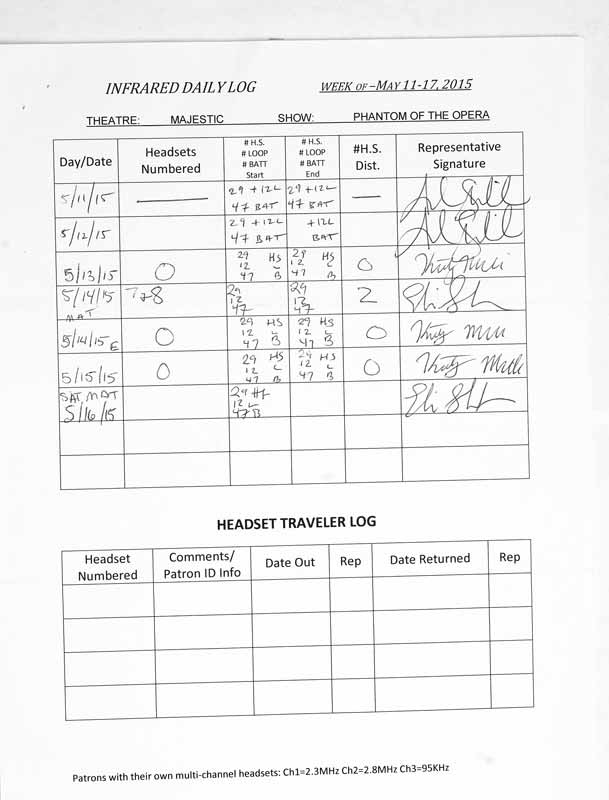 INFRARED DAILY LOG WEEK OF –MAY 11-17, 2015
THEATRE: MAJESTIC SHOW: PHANTOM OF THE OPERA
Day/Date Headsets Numbered # H.S. # LOOP # BATT Start # H.S. # LOOP # BATT End #H.S. Dist. Representative Signature
5/11/15 — 29 +12L 47 BAT 29 +12L 47 BAT —
5/12/15 29 +12L 47 BAT +12L BAT
5/13/15 0 29 HS 12 L 47 B 29 HS 12 L 47 B 0
5/14/15 MAT 7+8 29 12 47 29 12 47 2
5/14/15 E 0 29 HS 12 L 47 B 29 HS 12 L 47 B 0
5/15/15 0 29 HS 12 L 47 B 29 HS 12 L 47 B 0
SAT. MAT 5/16/15 29 HS 12 L 47 B
HEADSET TRAVELER LOG
Headset Numbered Comments/ Patron ID Info Date Out Rep Date Returned Rep
Patrons with their own multi-channel headsets: Ch1=2.3MHz Ch2=2.8MHz Ch3=95KHz